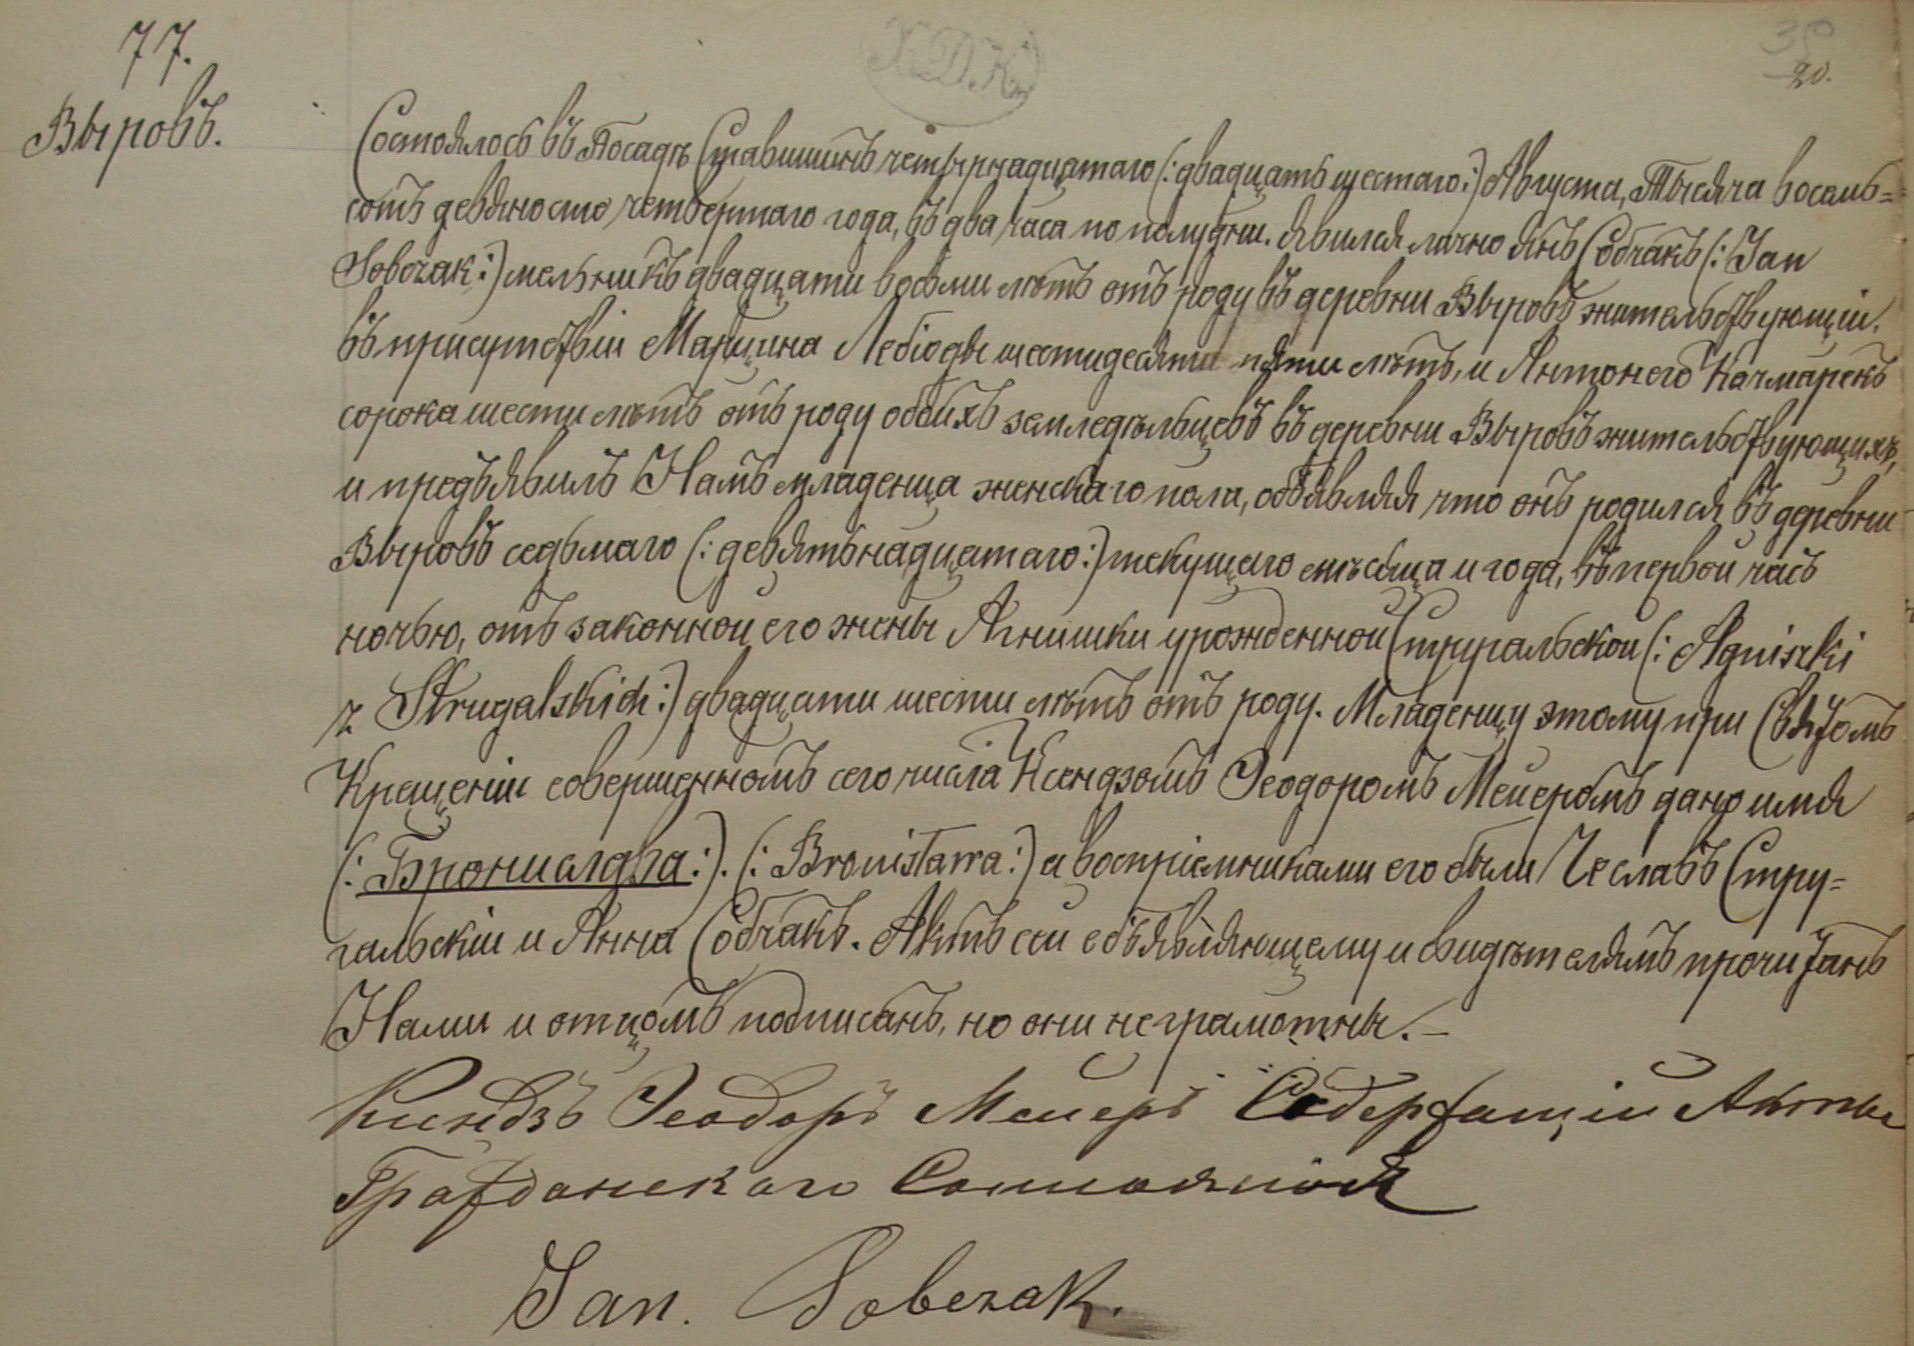 77.
Выровъ.
Х.Д.К.
35
20.
Состоялось въ Посадѣ Ставишинѣ четырнадцатаго (: двадцать шестаго :) Августа, Тысяча восемь=
сотъ девяносто четвертаго года, въ два часа по полудни. Явился лично Янъ Собчакъ (: Jan
Sobczak :) мельникъ двадцати восьми лѣтъ отъ роду въ деревни Выровъ жительствующій,
въ присутствіи Марцина Лебіоды шестидесяти пяти лѣтъ, и Антонего Качмарекъ
сорока шести лѣтъ отъ роду обоихъ земледѣльцевъ въ деревни Выровъ жительствующихъ,
и предъявилъ Намъ младенца женскаго пола, объявляя что онъ родился въ деревни
Выровъ седьмаго (: девятьнадцатаго :) текущаго мѣсяца и года, въ первой часъ
ночью, отъ законной его жены Агнишки урожденной Стругальской (: Agniszki
z Strugalskich :) двадцати шести лѣтъ отъ роду. Младенцу этому при Святомъ
Крещеніи совершенномъ сего числа Ксендзомъ Ѳеодоромъ Мейеромъ дано имя
(: Брониславa :). (: Bronisława :) а воспріемниками его были Чеславъ Стру=
гальскій и Анна Собчакъ. Актъ сей объявляющему и свидѣтелямъ прочитанъ
Нами и отцомъ подписанъ, но они неграмотны. –
Ксендзъ Ѳеодоръ Мейеръ Содержащій Акты
Гражданскаго Состоянія
Jan. Sobczak.